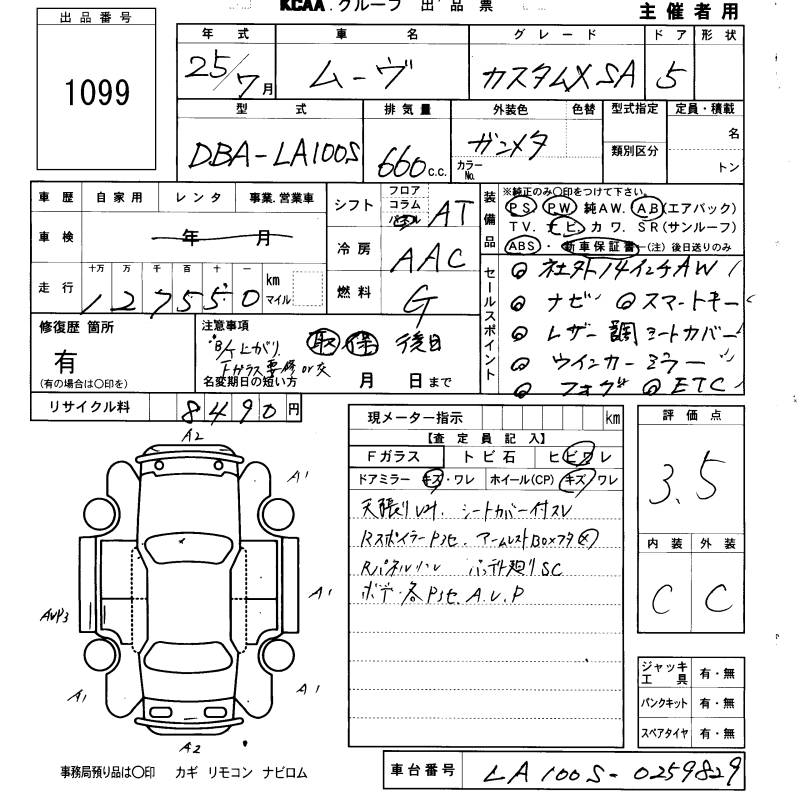 出品番号
1099
KCAA.グループ 出品票
主催者用
年式 車名 グレード ドア 形状
25/7月 ムーヴ カスタムX SA 5
型式 排気量 外装色 色替 型式指定 定員・積載
DBA-LA100S 660c.c. ガンメタ カラーNo. 類別区分 名
トン
車歴 自家用 レンタ 事業.営業車
車検 年 月
走行 十万 万 千 百 十 一 km マイル
127550
シフト フロア コラム AT
冷房 AAC
燃料 G
装備品 ※純正のみ○印をつけて下さい。
PS PW 純AW. AB(エアバック)
TV. ナビ. カワ. SR(サンルーフ)
ABS・新車保証書―(注)後日送りのみ
セールスポイント
社外14インチAW
ナビ スマートキー
レザー調シートカバー
ウインカーミラー
フォグ ETC
修復歴 箇所
有
(有の場合は○印を)
注意事項
取 保 後日
B/T上がり.
Fガラス要修or交
名変期日の短い方 月 日まで
リサイクル料 8490円
現メーター指示 km
【査定員記入】
Fガラス トビ石 ヒビワレ
ドアミラー キズ・ワレ ホイール(CP) キズ ワレ
シートカバー付スレ
RスポイラーPヌセ. アームレストBOXフタ
SC
ボデー各Pヌセ.A.U.P
評価点
3.5
内装 外装
C C
ジャッキ 工具 有・無
パンクキット 有・無
スペアタイヤ 有・無
A2
A1
A1
A1
A1
A2
事務局預り品は○印 カギ リモコン ナビロム
車台番号 LA100S-0259829